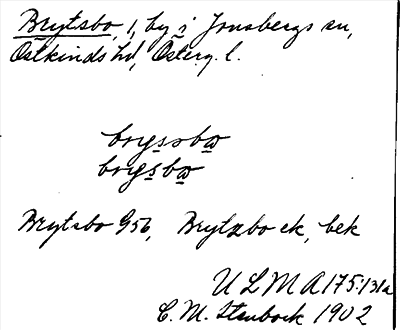 Brytsbo, 1, by i Jonsbergs sn,
Östkinds hd, Österg. l.
bryssbω
brysbω
Brytsbo G56, Brytzbo ek, bek
ULMA 175:131a
C. M. Stenbock 1902